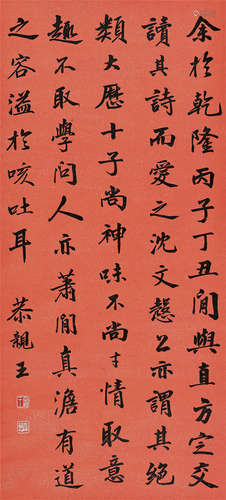 余於乾隆丙子丁丑間與直方定交
讀其詩而愛之沈文慤公亦謂其絕
類大歷十子尚神味不尚才情取意
趣不取學問人亦蕭閒真澹有道
之容溢於咳吐耳
恭親王